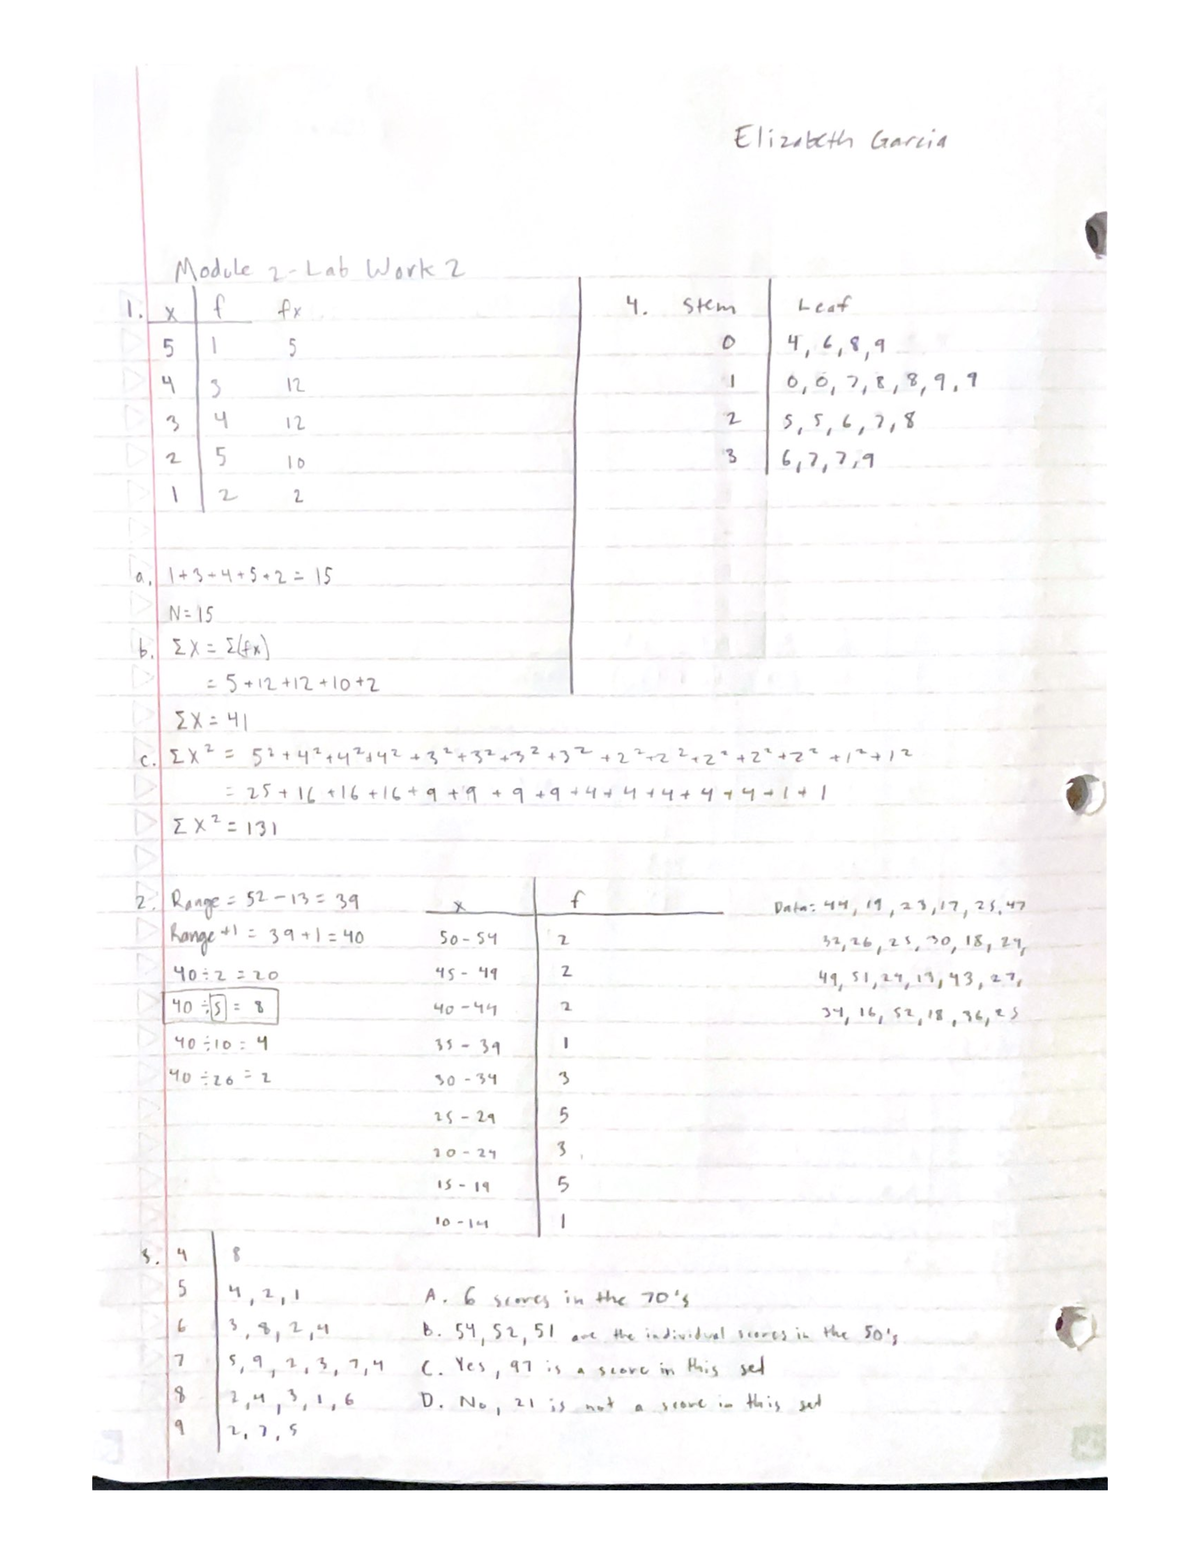 Elizabeth Garcia
Module 2 - Lab Work 2
1. x f fx
5 1 5
4 3 12
3 4 12
2 5 10
1 2 2
4. Stem Leaf
0 4, 6, 8, 9
1 0, 0, 7, 8, 8, 9, 9
2 5, 5, 6, 7, 8
3 6, 7, 7, 9
a. 1+3+4+5+2 = 15
N = 15
b. ΣX = Σ(fx)
= 5+12+12+10+2
ΣX = 41
c. ΣX² = 5²+4²+4²+4²+3²+3²+3²+3²+2²+2²+2²+2²+2²+1²+1²
= 25+16+16+16+9+9+9+9+4+4+4+4+4+1+1
ΣX² = 131
2. Range = 52-13 = 39
Range +1 = 39+1 = 40
40÷2 = 20
40÷5 = 8
40÷10 = 4
40÷20 = 2
x f
50-54 2
45-49 2
40-44 2
35-39 1
30-34 3
25-29 5
20-24 3
15-19 5
10-14 1
Data: 44, 19, 23, 17, 25, 47
32, 26, 25, 30, 18, 24,
49, 51, 24, 13, 43, 27,
34, 16, 52, 18, 36, 25
3. 4 8
5 4, 2, 1
6 3, 8, 2, 4
7 5, 9, 2, 3, 7, 4
8 2, 4, 3, 1, 6
9 2, 7, 5
A. 6 scores in the 70's
B. 54, 52, 51 are the individual scores in the 50's
C. Yes, 97 is a score in this set
D. No, 21 is not a score in this set